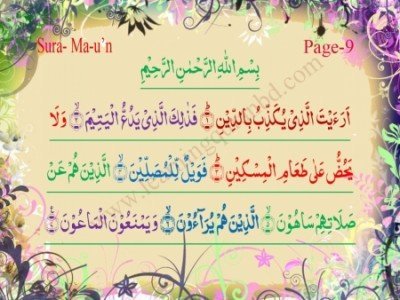 Sura- Ma-u'n Page-9
بِسْمِ اللهِ الرَّحْمٰنِ الرَّحِيْمِ
اَرَءَيْتَ الَّذِىْ يُكَذِّبُ بِالدِّيْنِ ۝١ فَذٰلِكَ الَّذِىْ يَدُعُّ الْيَتِيْمَ ۝٢ وَلَا
يَحُضُّ عَلٰى طَعَامِ الْمِسْكِيْنِ ۝٣ فَوَيْلٌ لِّلْمُصَلِّيْنَ ۝٤ الَّذِيْنَ هُمْ عَنْ
صَلَاتِهِمْ سَاهُوْنَ ۝٥ الَّذِيْنَ هُمْ يُرَآءُوْنَ ۝٦ وَيَمْنَعُوْنَ الْمَاعُوْنَ ۝٧